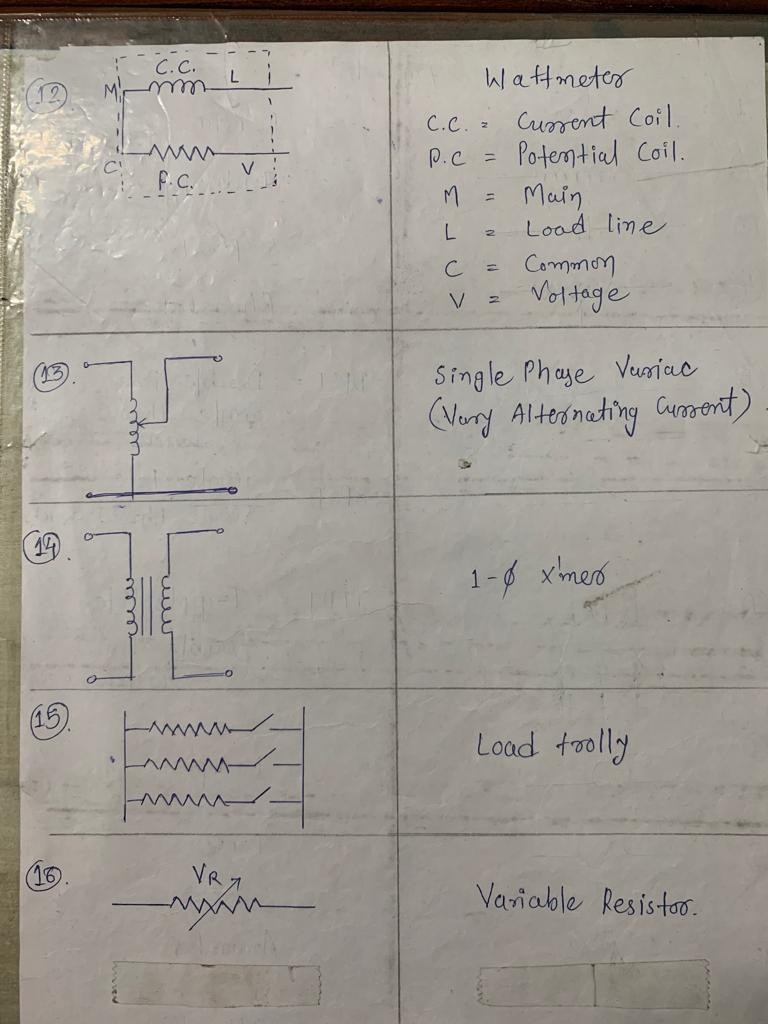 12.
C.C.
M L
C V
P.C.
Wattmeter
C.C. = Current Coil.
P.C = Potential Coil.
M = Main
L = Load line
C = Common
V = Voltage
13.
Single Phase Variac
(Vary Alternating Current)
14.
1-ϕ x'mer
15.
Load trolly
16.
VR
Variable Resistor.